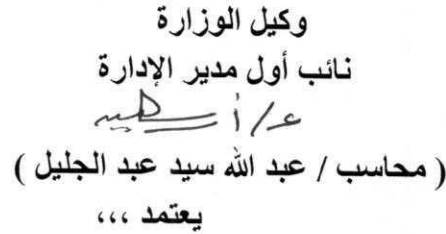 وكيل الوزارة
نائب أول مدير الإدارة
( محاسب / عبد الله سيد عبد الجليل )
يعتمد ،،،